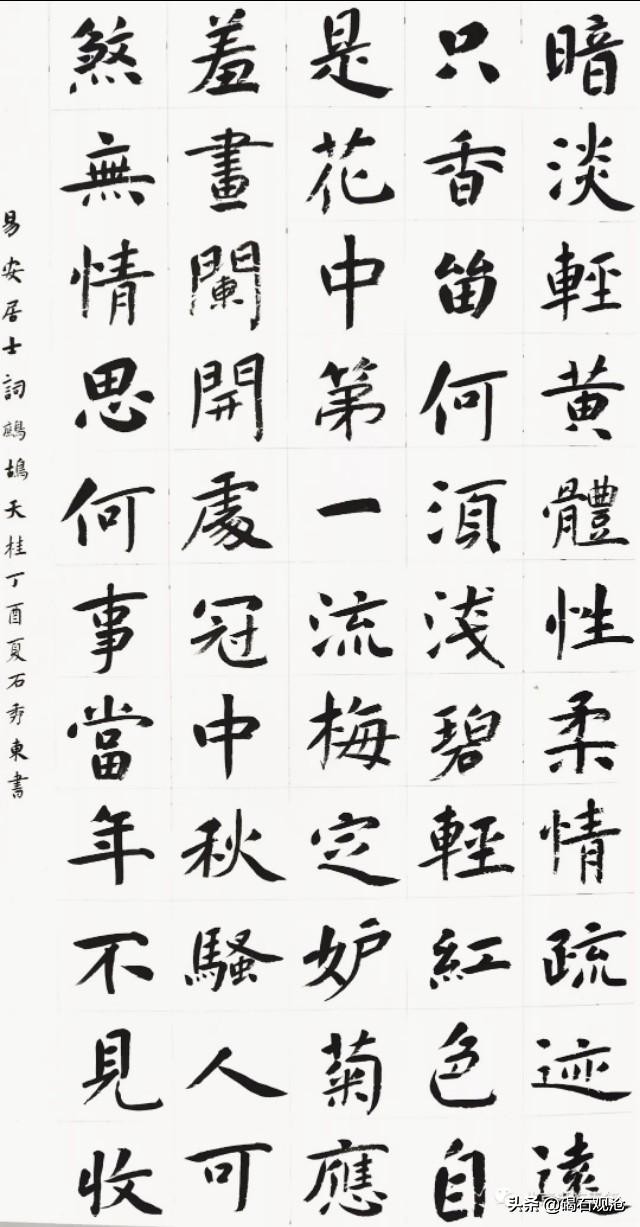 暗淡輕黄體性柔情疏迹遠
只香留何須淺碧輕紅色自
是花中第一流梅定妒菊應
羞畫闌開處冠中秋騷人可
煞無情思何事當年不見收
易安居士詞鷓鴣天桂丁酉夏石秀東書
头条 @碣石观沧